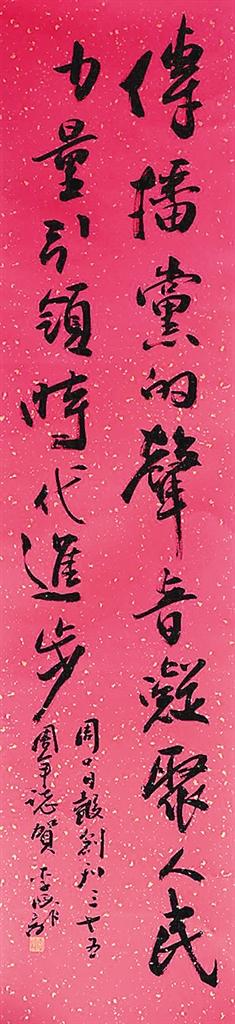 傳播黨的聲音凝聚人民
力量引領時代進步
周口日報創刊三十五
周年誌賀